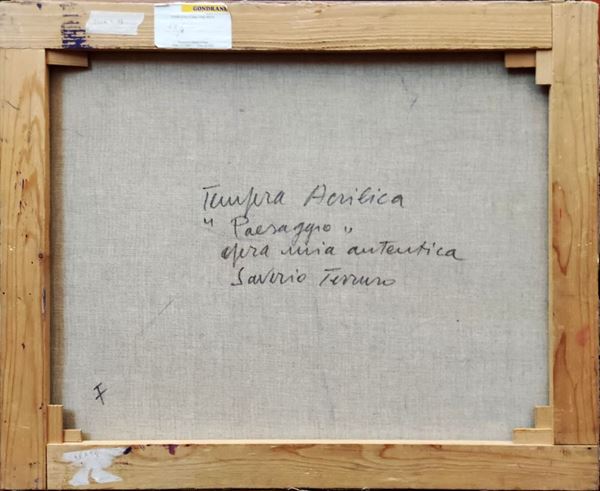 GONDRAND
Tempera Acrilica
" Paesaggio "
opera mia autentica
Saverio Terruso